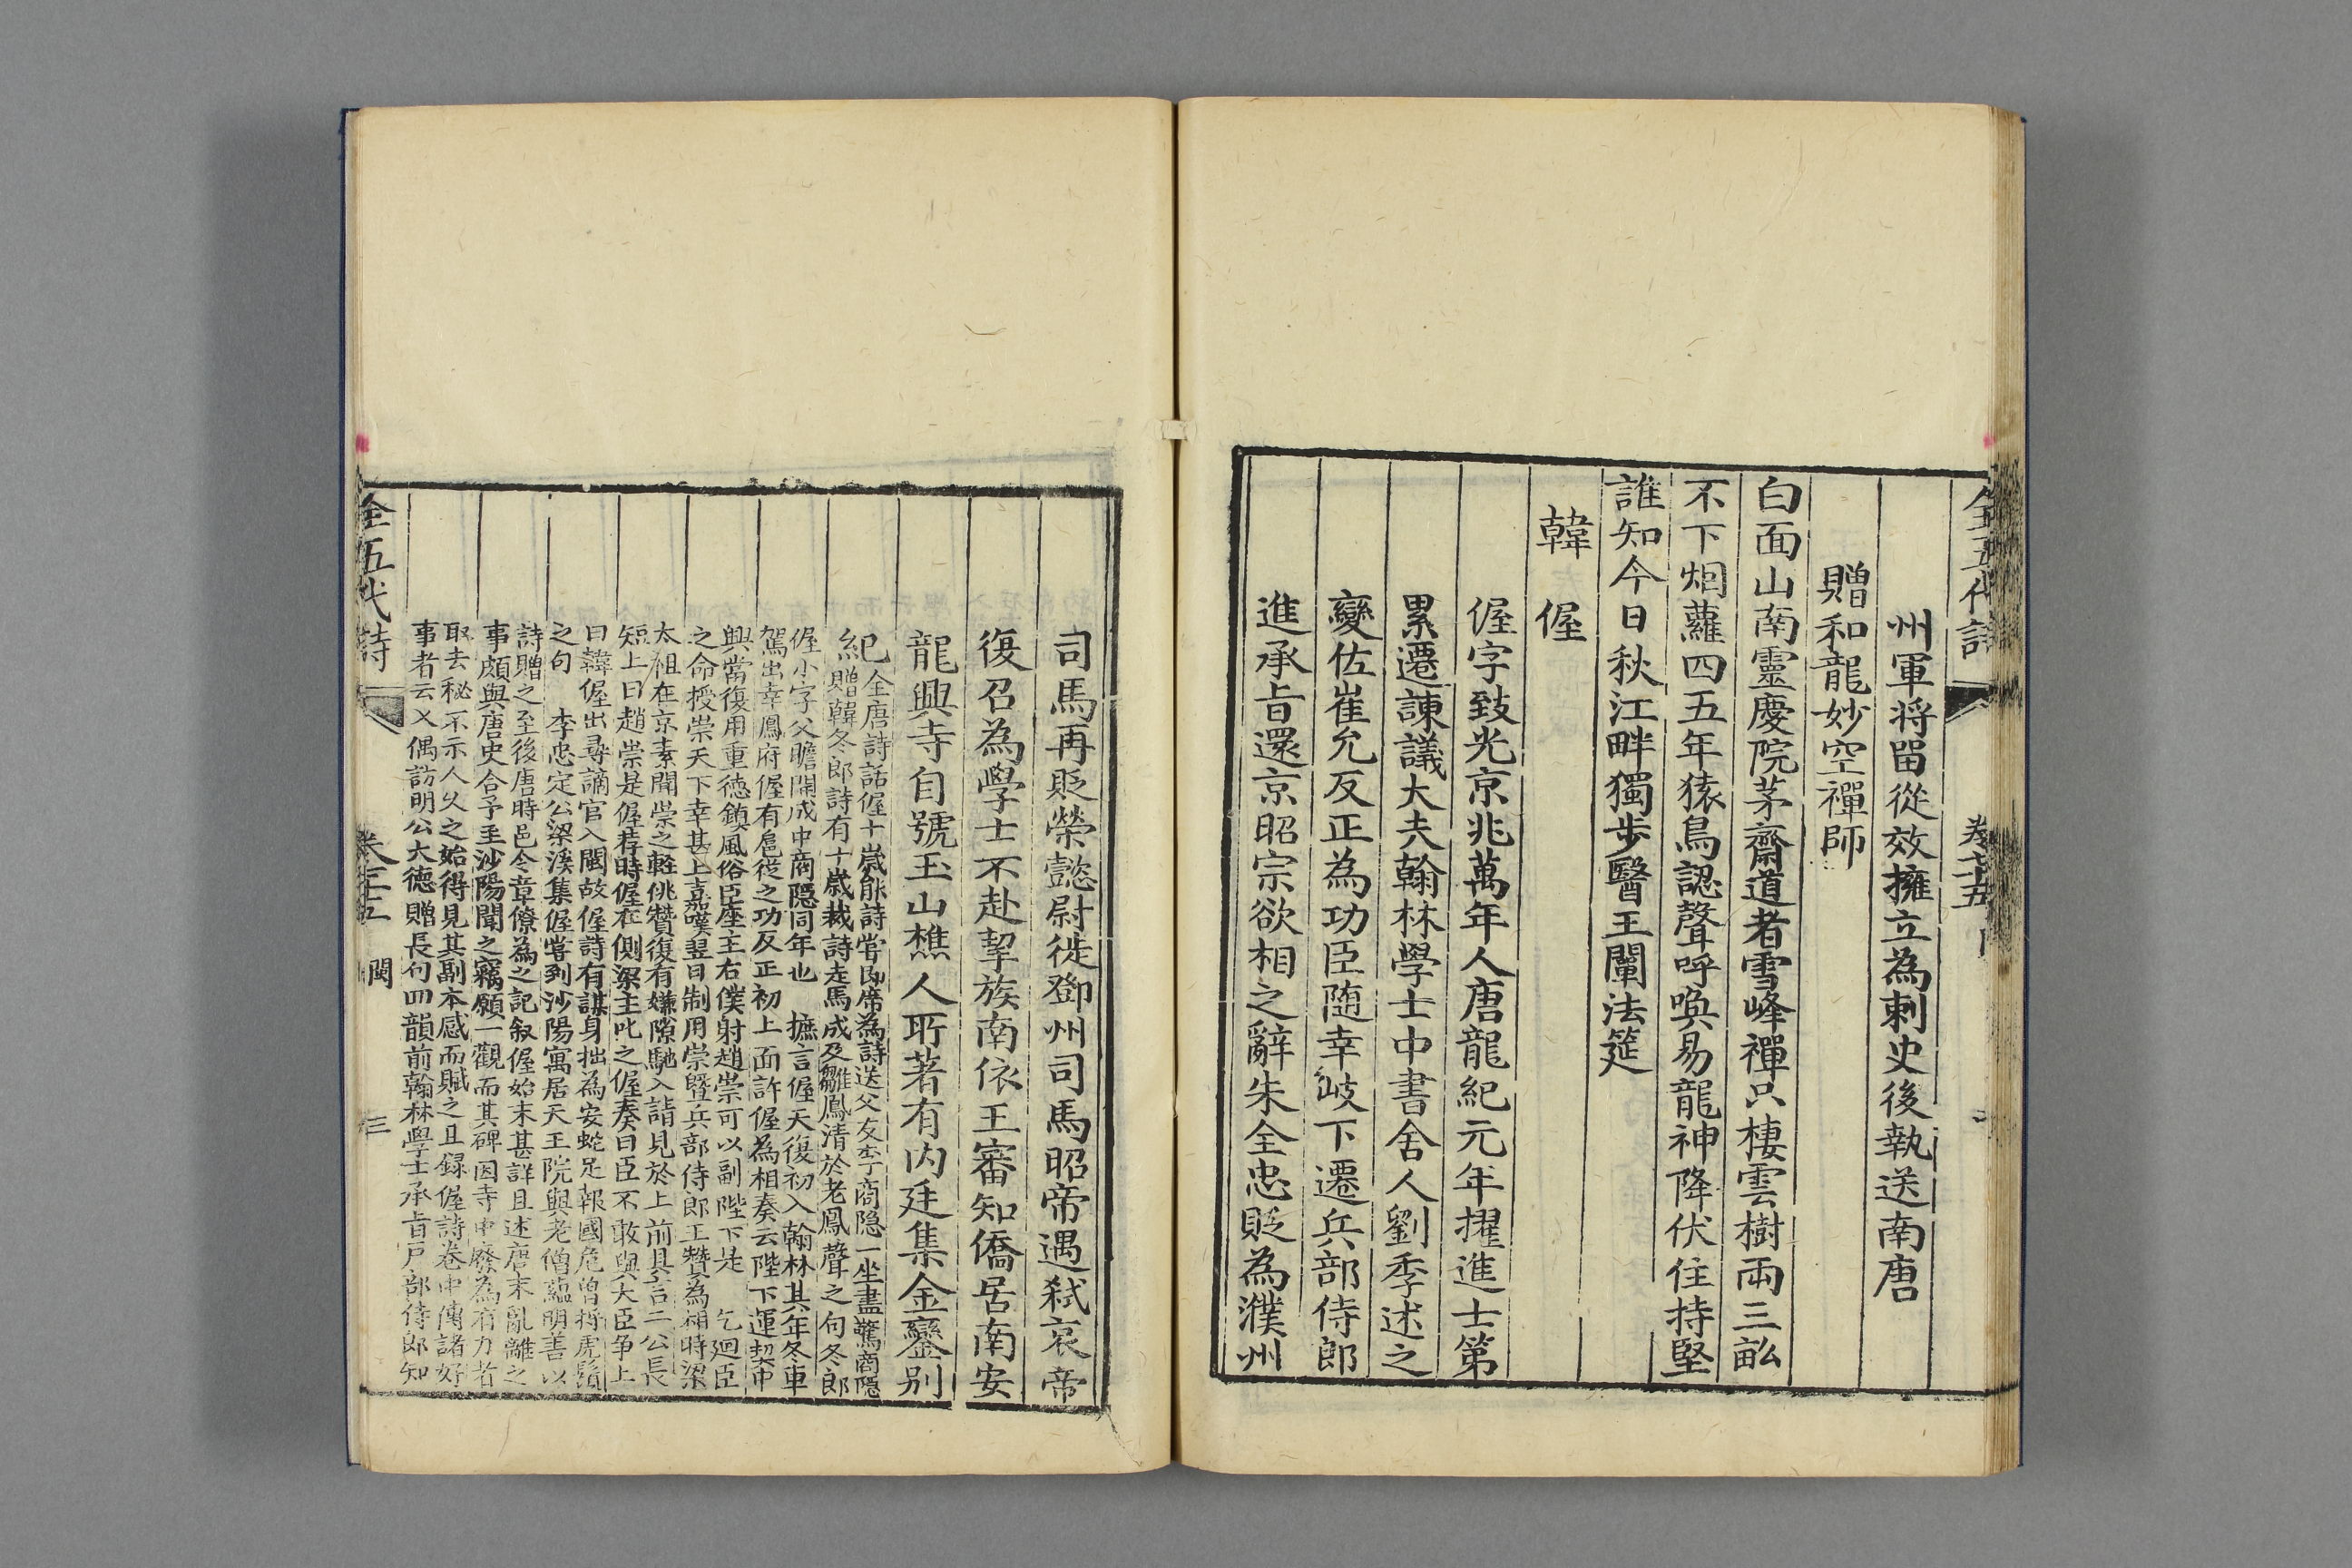 全五代詩
卷七十五
州軍将留從效擁立為刺史後執送南唐
贈和龍妙空禪師
白面山南靈慶院茅齋道者雪峰禪只棲雲樹兩三畝
不下烟蘿四五年猿鳥認聲呼喚易龍神降伏住持堅
誰知今日秋江畔獨步醫王闡法筵
韓偓
偓字致光京兆萬年人唐龍紀元年擢進士第
累遷諫議大夫翰林學士中書舍人劉季述之
變佐崔允反正為功臣随幸岐下遷兵部侍郎
進承旨還京昭宗欲相之辭朱全忠貶為濮州
司馬再貶榮懿尉徙鄧州司馬昭帝遇弑哀帝
復召為學士不赴挈族南依王審知僑居南安
龍興寺自號玉山樵人所著有内廷集金鑾別
紀
全唐詩話偓十歲能詩嘗即席為詩送父友李商隐一坐盡驚商隱
贈韓冬郎詩有十歲裁詩走馬成及雛鳳清於老鳳聲之句冬郎
偓小字父瞻開成中商隱同年也 摭言偓天復初入翰林其年冬車
駕出幸鳳府偓有扈從之功反正初上面許偓為相奏云陛下運契中
興當復用重德鎮風俗臣座主右僕射趙崇可以副陛下是 乞迴臣
之命授崇天下幸甚上嘉嘆翌日制用崇暨兵部侍郎王贊為相時梁
太祖在京素聞崇之輕佻贊復有嫌隙馳入請見於上前具言二公長
短上曰趙崇是偓荐時偓在側梁主叱之偓奏曰臣不敢與大臣争上
曰韓偓出尋謫官入閩故偓詩有謀身拙為安蛇足報國危曾捋虎鬚
之句 李忠定公梁溪集偓嘗到沙陽寓居天王院與老僧蘊明善以
詩贈之至後唐時邑令章僚為之記叙偓始末甚詳且述唐末亂離之
事頗與唐史合予至沙陽聞之竊願一觀而其碑因寺中廢為有力者
取去秘不示人久之始得見其副本感而賦之且録偓詩卷中傳諸好
事者云又偶訪明公大德贈長句四韻前翰林學士承旨戸部侍郎知
全五代詩
卷七十五 閩 三